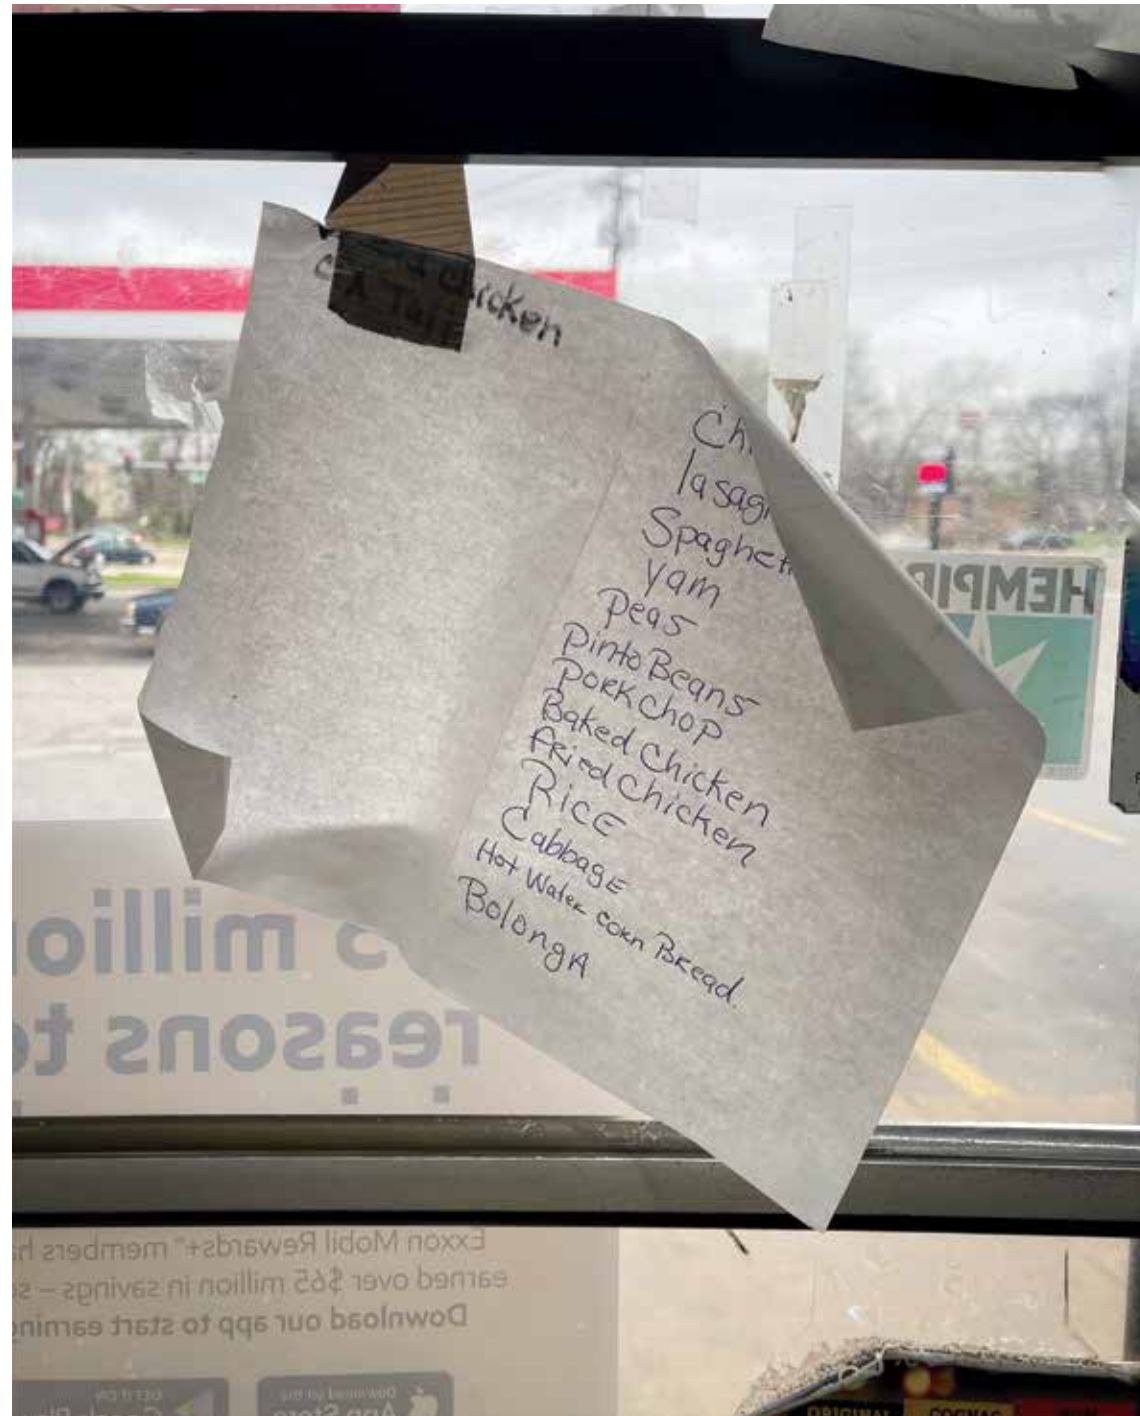 Chicken
Ch
lasag
Spaghet
Yam
Peas
Pinto Beans
PORK Chop
Baked Chicken
fried Chicken
RICE
CabbagE
Hot Water corn Bread.
BolongA
HEMPIR
5 million
reasons to
Exxon Mobil Rewards+™ members ha
earned over $65 million in savings – so
Download our app to start earning
GET IT ON
Google Play
Download on the
App Store
ORIGINAL
COGNAC